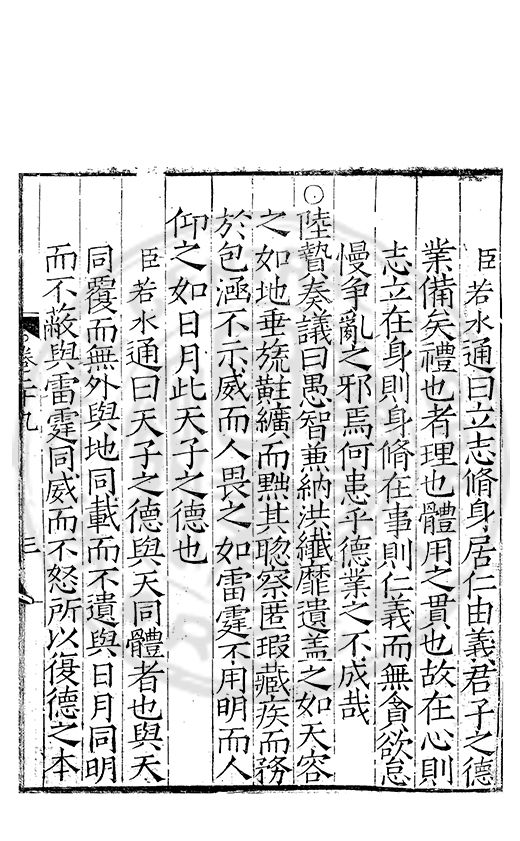 臣若水通曰立志脩身居仁由義君子之德
業備矣禮也者理也體用之貫也故在心則
志立在身則身脩在事則仁義而無貪欲怠
慢争亂之邪焉何患乎德業之不成哉
○陸贄奏議曰愚智兼納洪纖靡遺蓋之如天容
之如地垂旒黈纊而黜其聦察匿瑕藏疾而務
於包涵不示威而人畏之如雷霆不用明而人
仰之如日月此天子之德也
臣若水通曰天子之德與天同體者也與天
同覆而無外與地同載而不遺與日月同明
而不蔽與雷霆同威而不怒所以優德之本
卷二十九
三